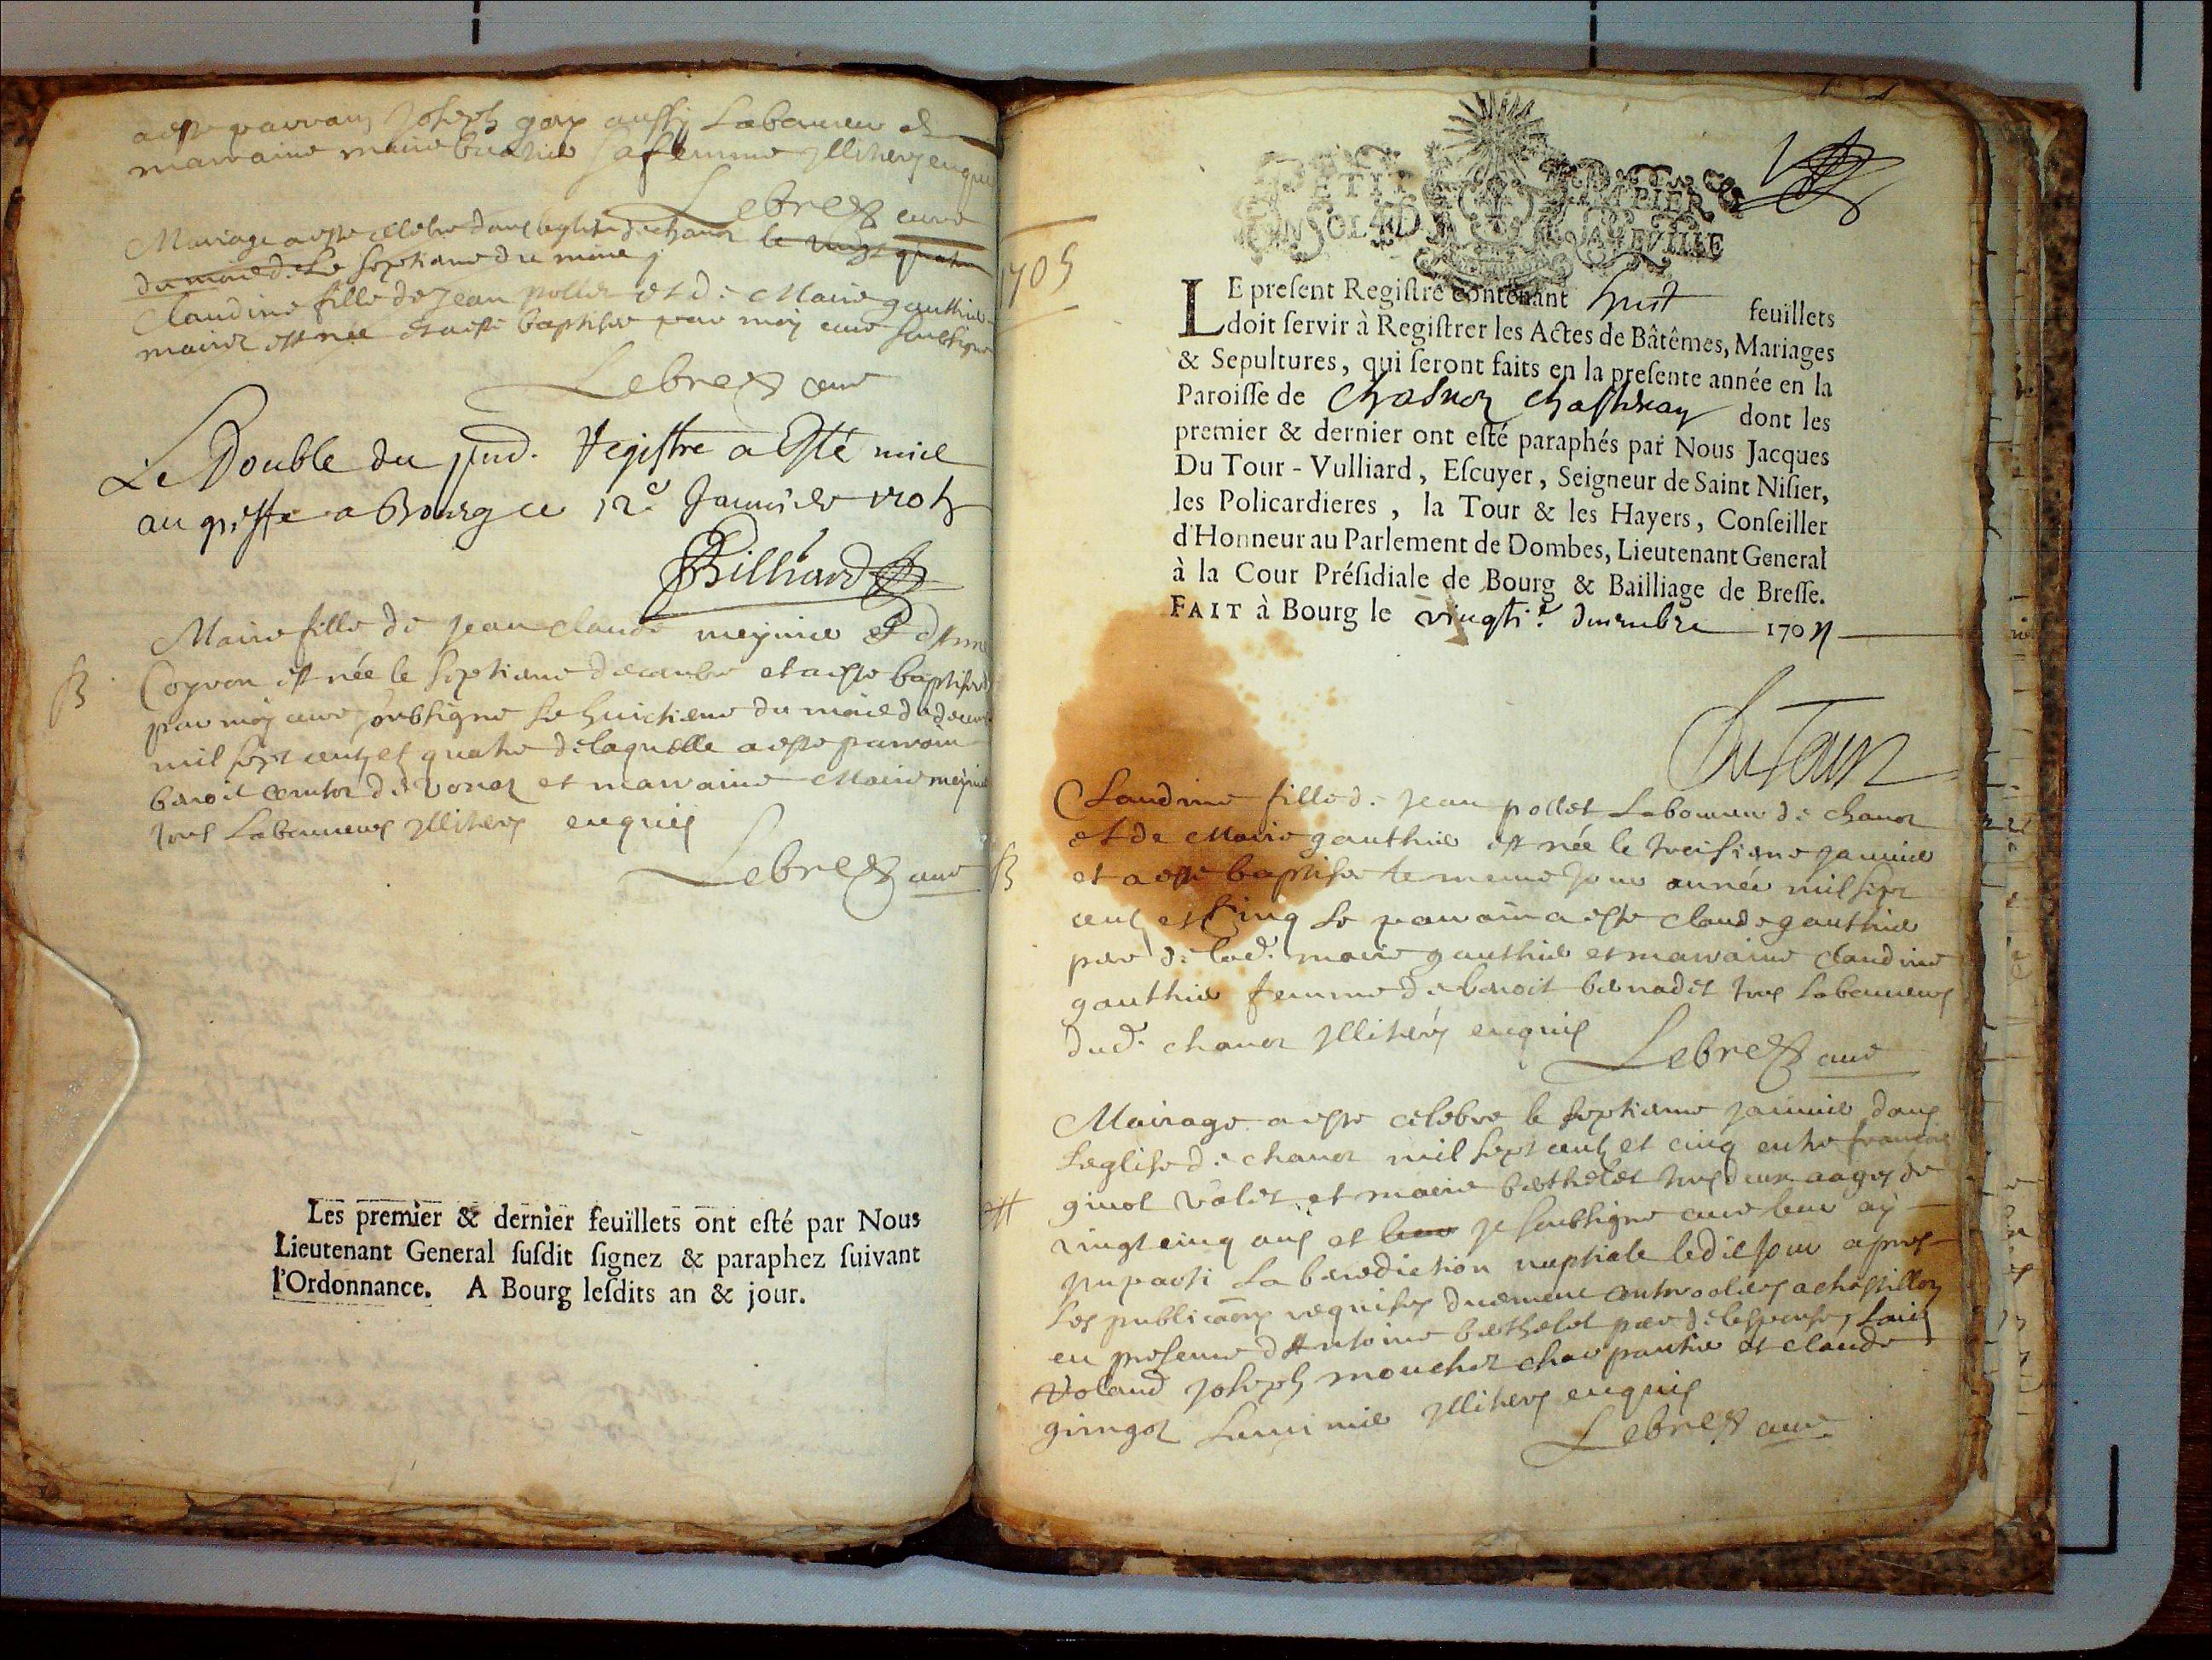 a esté parrain Joseph gory aussy Laboureur et
marraine marie buathier sa femme Illiterez enquis
Lebrez curé
Mariage a esté celebre dans leglise de chanoz le vingt quatre
du mois de Le septieme du mois
Claudine fille de Jean pollet et de Marie gauthier
mariez est née et a esté baptisée par moy curé soubsigné
Lebrez curé
Le Double du pnt. Registre a Esté mis
au greffe a Bourg ce 12e Janvier 1705
Billiard
Marie fille de Jean claude meynier et d'Anne
B Coyron est née le septieme decembre et a esté baptisée
par moy curé soubsigné le huictieme du mois de decembre
mil sept cent et quatre de laquelle a esté parrain
benoit de vonoz et marraine Marie meynier
tous Laboureurs Illiterez enquis
Lebrez curé
Les premier & dernier feüillets ont esté par Nous
Lieutenant General susdit signez & paraphez suivant
l'Ordonnance. A Bourg lesdits an & jour.
PETIT PAPIER
EN SOLD LA FEUILLE
1705
LE present Registre contenant huit feuillets
doit servir à Registrer les Actes de Bâtêmes, Mariages
& Sepultures, qui seront faits en la presente année en la
Paroisse de Chasnoz Chastenay dont les
premier & dernier ont esté paraphés par Nous Jacques
Du Tour - Vulliard, Escuyer, Seigneur de Saint Nisier,
les Policardieres, la Tour & les Hayers, Conseiller
d'Honneur au Parlement de Dombes, Lieutenant General
à la Cour Présidiale de Bourg & Bailliage de Bresse.
FAIT à Bourg le vingtie. decembre 1704
DuTour
Claudine fille de Jean pollet Laboureur de chanoz
et de Marie gauthier est née le troisieme janvier
B et a esté baptisée le meme jour année mil sept
cent et Cinq Le parrain a esté claude gauthier
pere de lad. marie gauthier et marraine claudine
gauthier femme de benoit bernadet tous Laboureurs
dud. chanoz Illiterez enquis
Lebrez curé
Mariage a esté celebre le septieme janvier dans
Leglise de chanoz mil sept cent et cinq entre francois
M givot valet et marie berthelet tous deux aagez de
vingt cinq ans et leur je soubsigné curé leur ay
imparti La benediction nuptiale ledit jour apres
Les publicaons requises duement controolées a chastillon
en presence d'Antoine berthelet pere de lespouse, Louis
Voland Joseph mouchet charpantier et claude
gringoz Illiterez enquis
Lebrez curé